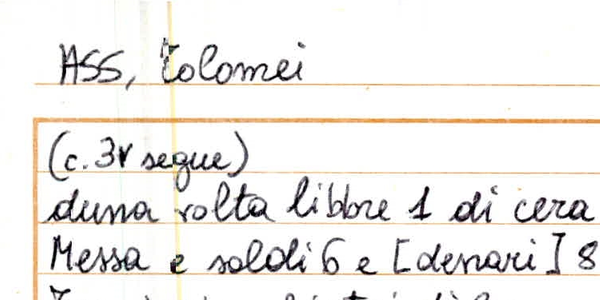 ASS, Tolomei
(c. 3v segue)
duna volta libbre 1 di cera
Messa e soldi 6 e [denari] 8